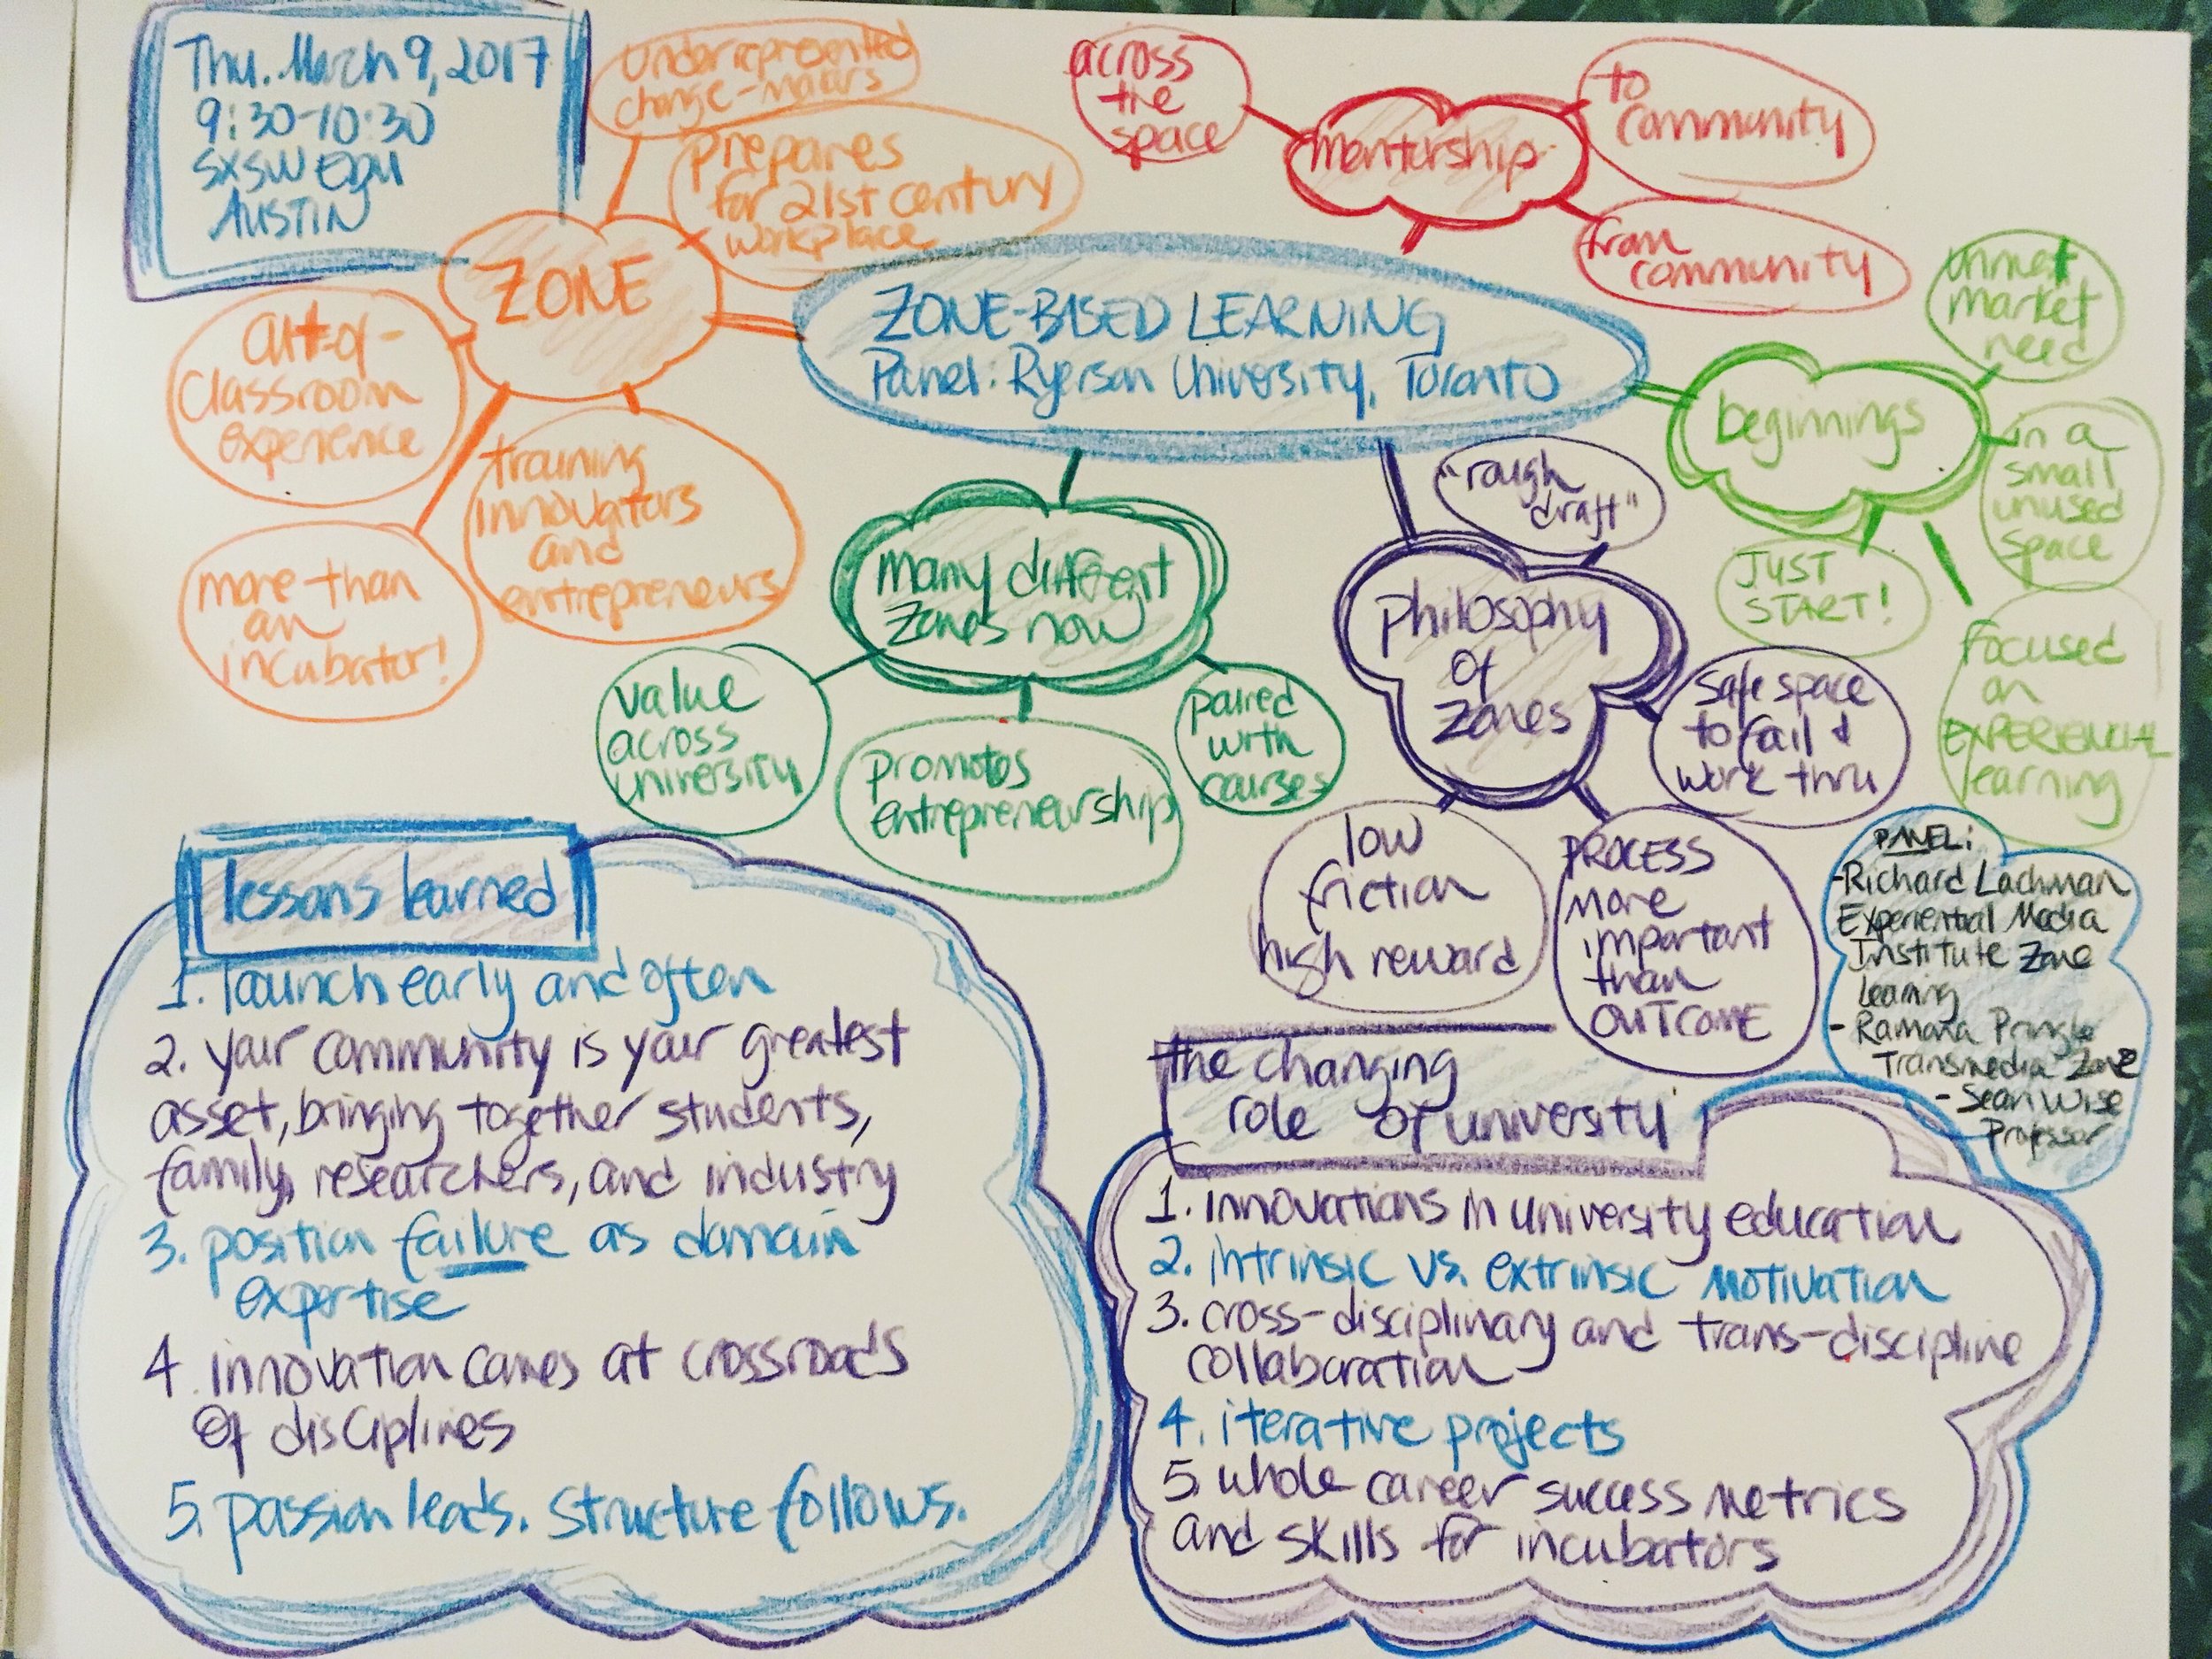 Thu. March 9, 2017
9:30-10:30
SXSW EDU
AUSTIN
Underrepresented
change-makers
prepares
for 21st century
workplace
ZONE
out-of-
classroom
experience
more than
an
incubator!
training
innovators
and
entrepreneurs
across
the
space
mentorship
to
community
from
community
ZONE-BASED LEARNING
Panel: Ryerson University, Toronto
beginnings
unmet
market
need
in a
small
unused
space
JUST
START!
Focused
on
EXPERIENCIAL
learning
many different
zones now
value
across
university
promotes
entrepreneurship
paired
with
courses
"rough
draft"
philosophy
of
zones
safe space
to fail &
work thru
low
friction
high reward
PROCESS
more
important
than
OUTCOME
PANEL:
-Richard Lachman
Experiential Media
Institute Zone
Learning
- Ramona Pringle
Transmedia Zone
- Sean Wise
Professor
lessons learned
1. launch early and often
2. your community is your greatest
asset, bringing together students,
family, researchers, and industry
3. position failure as domain
expertise
4. innovation comes at crossroads
of disciplines
5. passion leads. structure follows.
the changing
role of university
1. innovations in university education
2. intrinsic vs. extrinsic motivation
3. cross-disciplinary and trans-discipline
collaboration
4. iterative projects
5. whole career success metrics
and skills for incubators